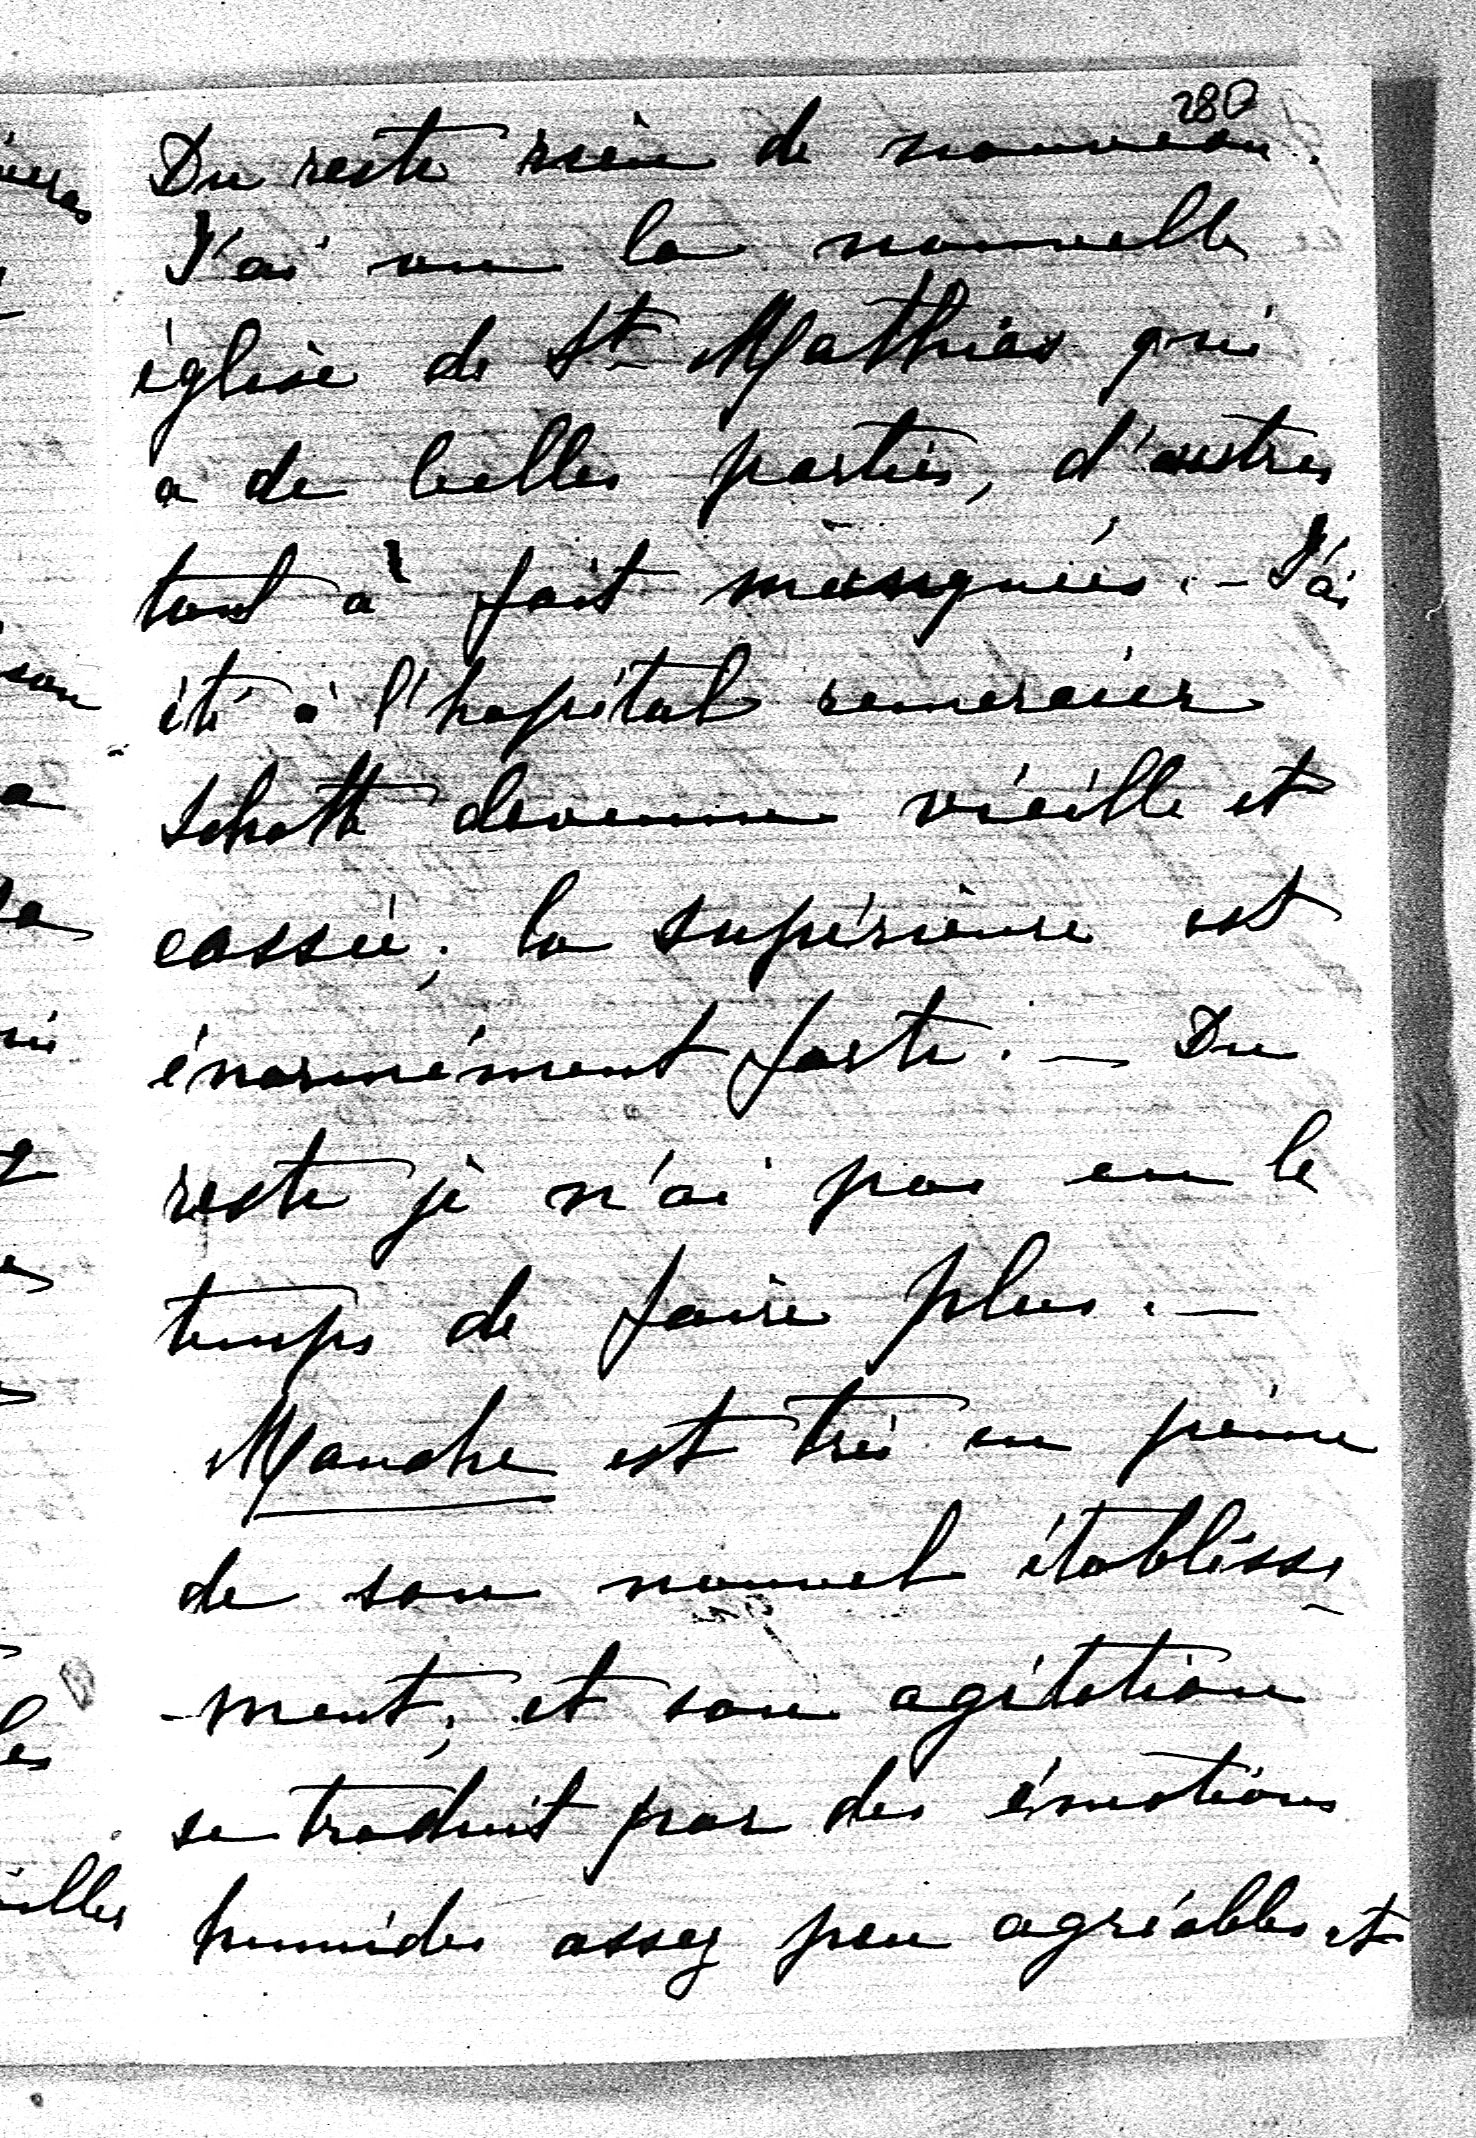 280
Du reste rien de nouveau.
J'ai vu la nouvelle
église de St Mathias qui
a de belles parties, d'autres
tout à fait manquées. - J'ai
été à l'hopital remercier
Schotte devenue vieille et
cassée; la supérieure est
énormément forte. — Du
reste je n'ai pas eu le
temps de faire plus. —
Mandre est très en peine
de son nouvel établisse
-ment, et son agitation
se traduit par des émotions
humides assez peu agréables et